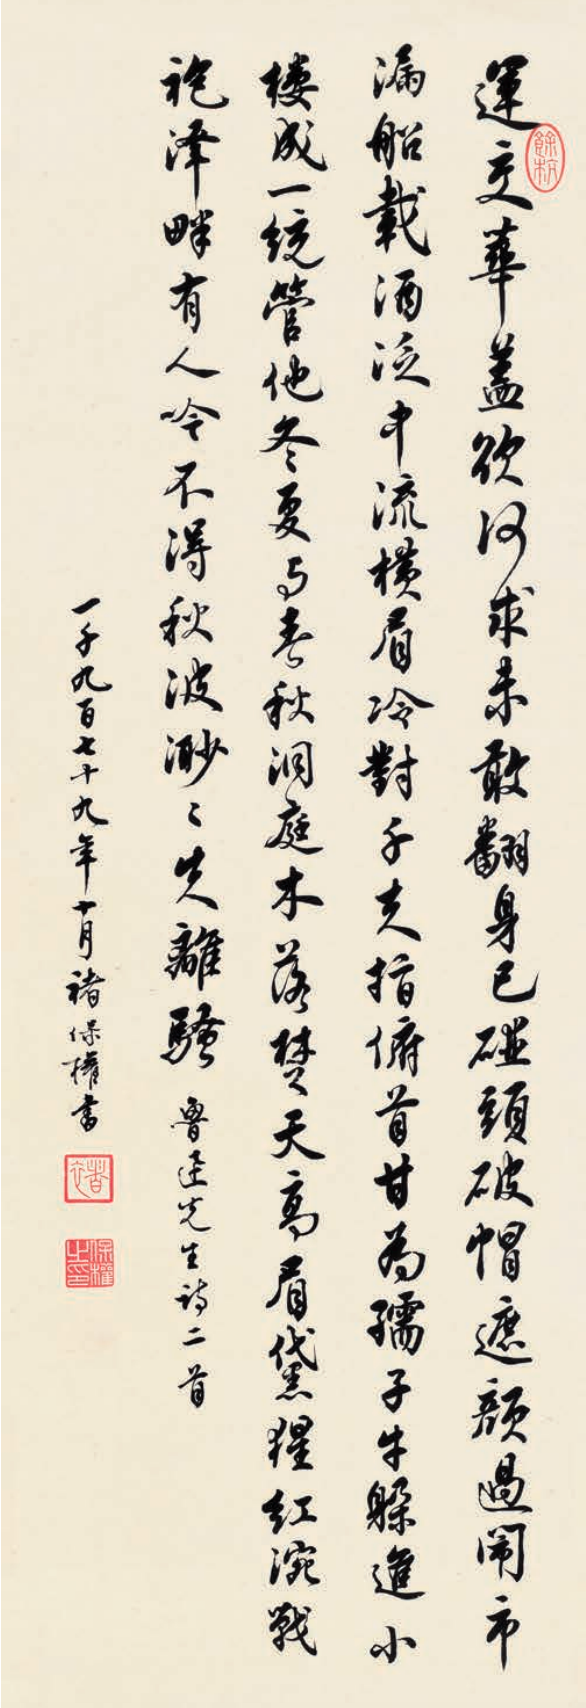 餘杭
運交華蓋欲何求未敢翻身已碰頭破帽遮顏過鬧市
漏船載酒泛中流橫眉冷對千夫指俯首甘為孺子牛躲進小
樓成一統管他冬夏与春秋洞庭木落楚天高眉黛猩紅涴戰
袍澤畔有人吟不得秋波渺〻失離騷 魯迅先生詩二首
一千九百七十九年十月褚保權書
褚
保權之印